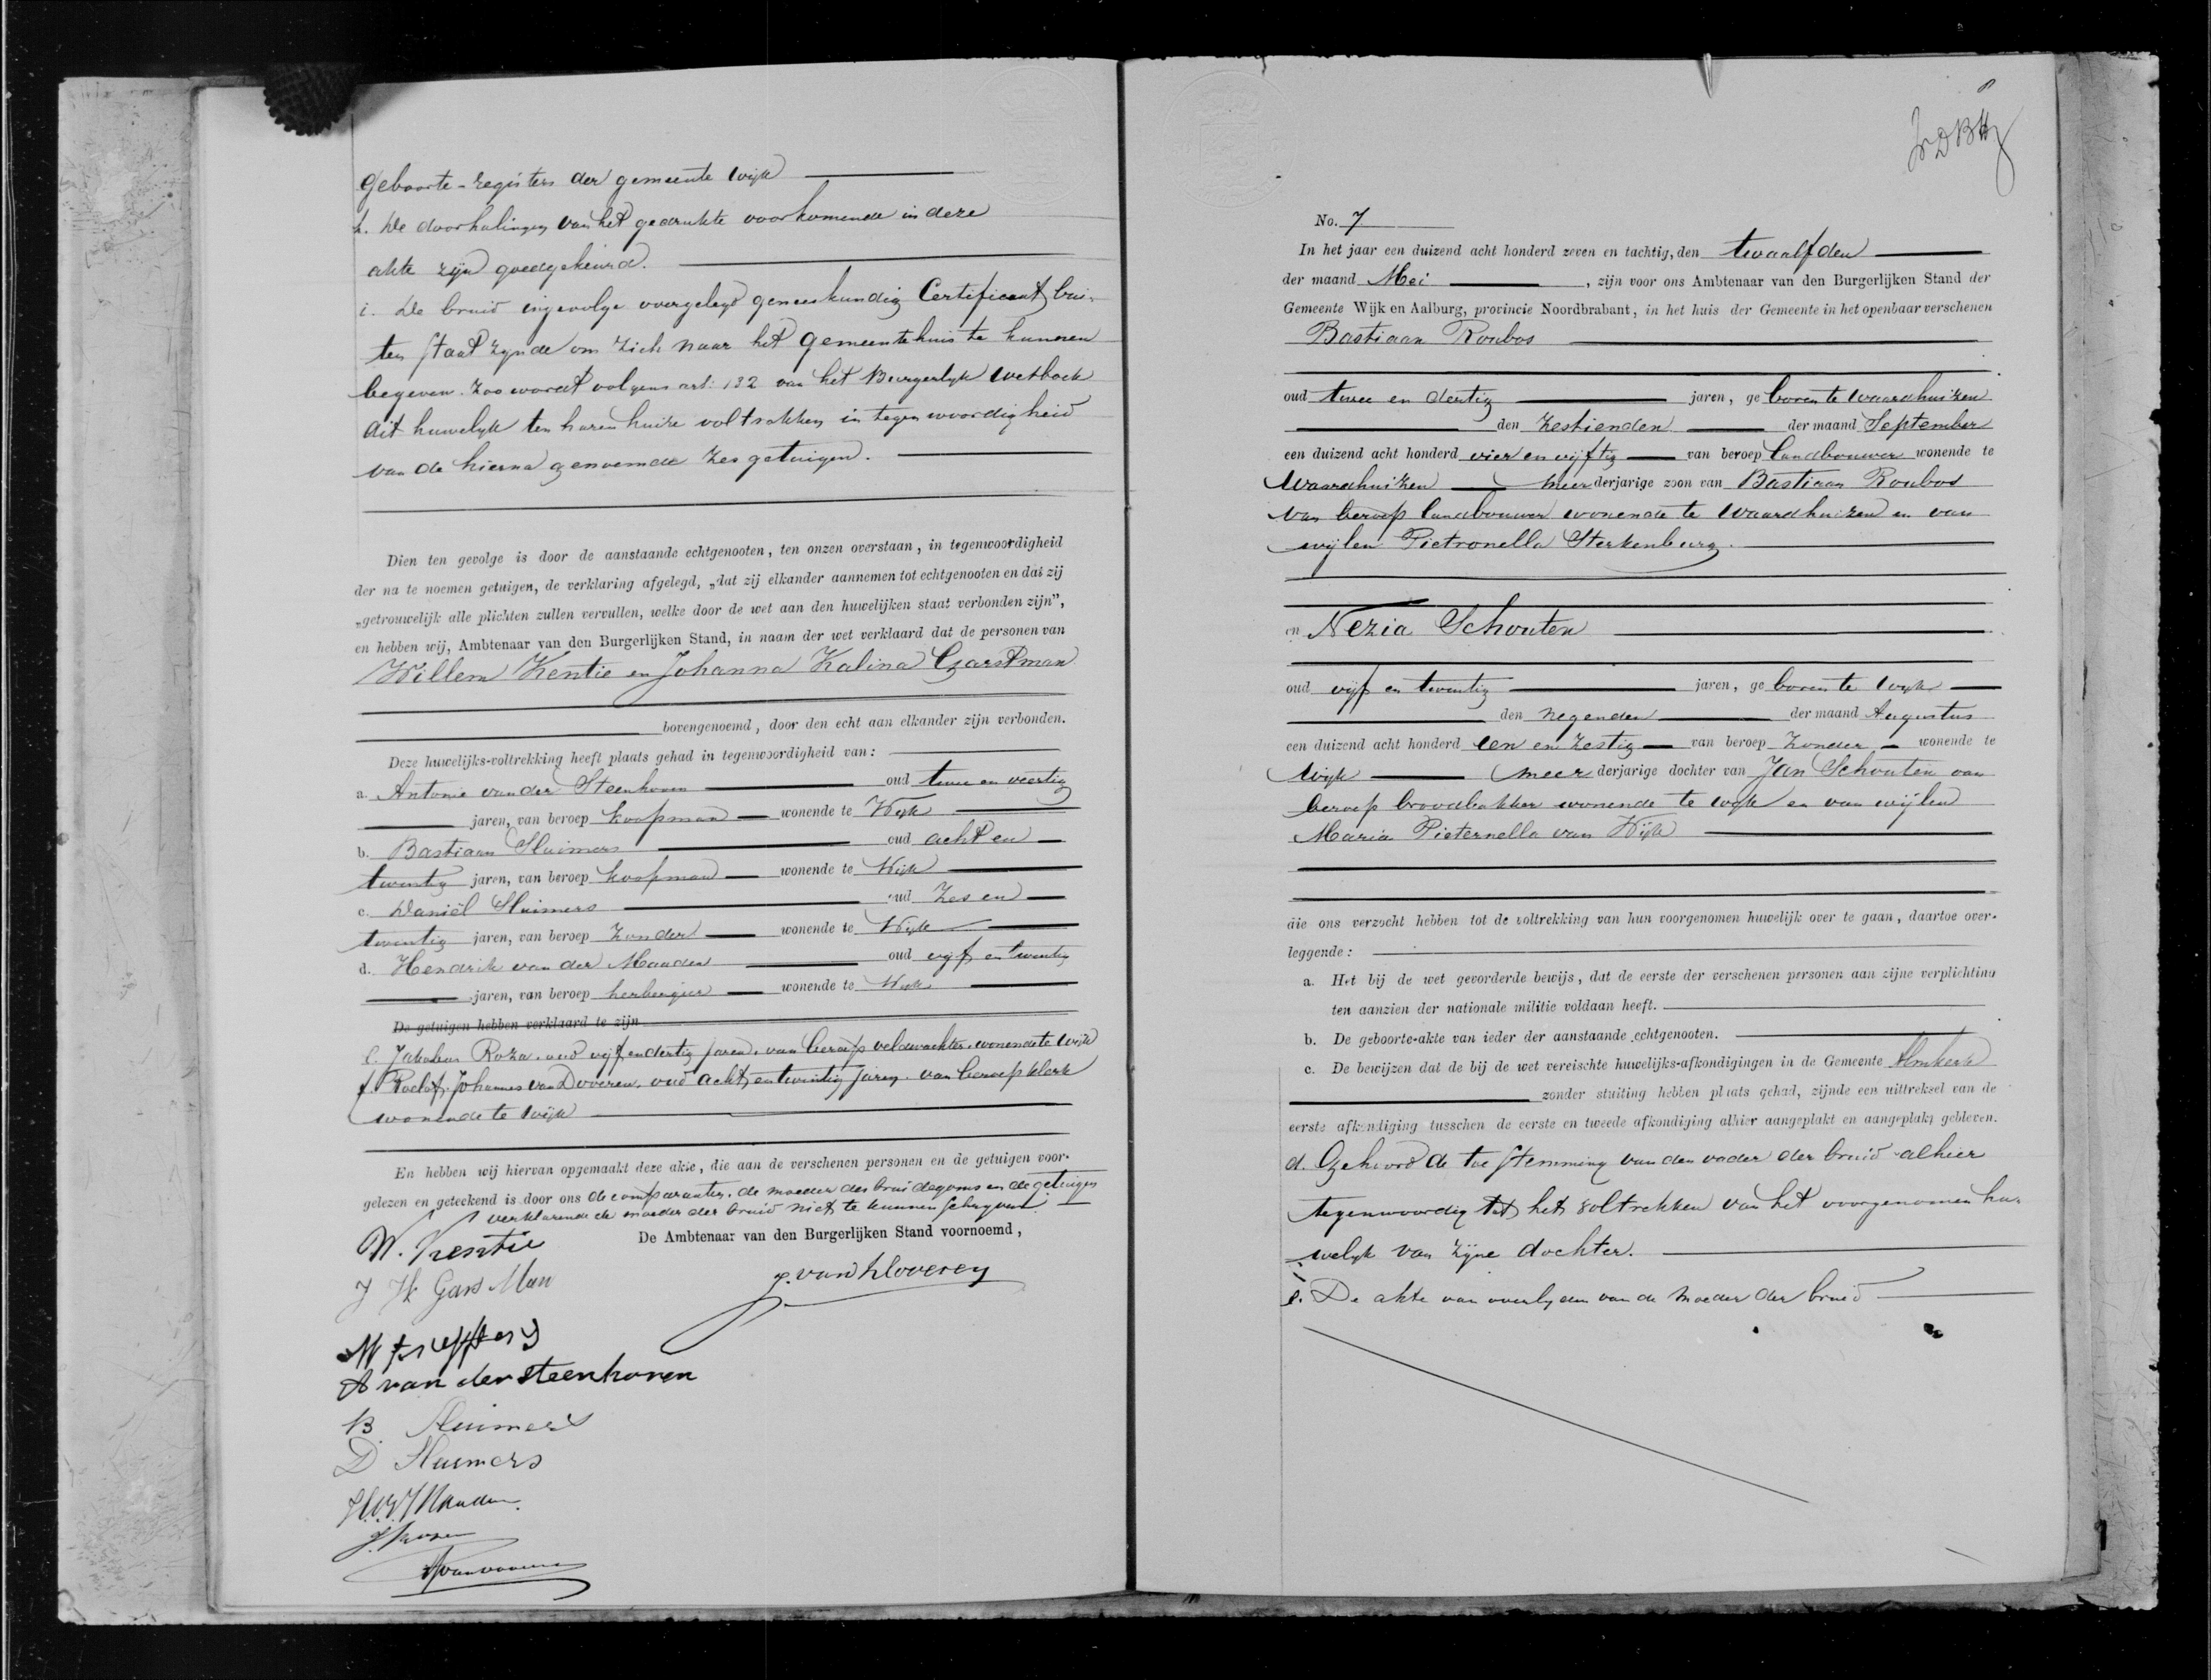 geboorte-registers der gemeente Wijk
h. De doorhalingen van het gedrukte voorkomende in deze
akte zijn goedgekeurd.
i. De bruid ingevolge overgelegd geneeskundig Certificaat bui-
ten staat zijnde om zich naar het gemeentehuis te kunnen
begeven. Zoo wordt volgens art. 132 van het Burgerlijk Wetboek
dit huwelijk ten haren huize voltrokken in tegenwoordigheid
van de hierna genoemde zes getuigen.
Dien ten gevolge is door de aanstaande echtgenooten, ten onzen overstaan, in tegenwoordigheid
der na te noemen getuigen, de verklaring afgelegd, „dat zij elkander aannemen tot echtgenooten en dat zij
„getrouwelijk alle plichten zullen vervullen, welke door de wet aan den huwelijken staat verbonden zijn”,
en hebben wij, Ambtenaar van den Burgerlijken Stand, in naam der wet verklaard dat de personen van
Willem Kentie en Johanna Kalina
bovengenoemd, door den echt aan elkander zijn verbonden.
Deze huwelijks-voltrekking heeft plaats gehad in tegenwoordigheid van:
a. Antonie van der Steenhoven oud twee en veertig
jaren, van beroep koopman wonende te Wijk
b. Bastiaan Sluimers oud acht en
twintig jaren, van beroep koopman wonende te Wijk
c. Daniël Sluimers oud zes en
twintig jaren, van beroep zonder wonende te Wijk
d. Hendrik van der Maaden oud vijf en twintig
jaren, van beroep herbergier wonende te Wijk
De getuigen hebben verklaard te zijn
e. Jakobus Roza, oud vijf en dertig jaren, van beroep veldwachter, wonende te Wijk
f. Roelof Johannes van Dooveren, oud acht en twintig jaren, van beroep klerk
wonende te Wijk
En hebben wij hiervan opgemaakt deze akte, die aan de verschenen personen en de getuigen voor-
gelezen en geteekend is door ons de comparanten, de moeder des bruidegoms en de getuigen
verklarende de moeder der bruid niet te kunnen schrijven.
De Ambtenaar van den Burgerlijken Stand voornoemd,
W. Kentie
J K Gars Man
A van der Steenhoven
B Sluimers
D Sluimers
No. 7
In het jaar een duizend acht honderd zeven en tachtig, den twaalfden
der maand Mei, zijn voor ons Ambtenaar van den Burgerlijken Stand der
Gemeente Wijk en Aalburg, provincie Noordbrabant, in het huis der Gemeente in het openbaar verschenen
Bastiaan Roubos
oud twee en dertig jaren, geboren te Waardhuizen
den zestienden der maand September
een duizend acht honderd vier en vijftig van beroep landbouwer wonende te
Waardhuizen meerderjarige zoon van Bastiaan Roubos
van beroep landbouwer wonende te Waardhuizen en van
wijlen Pietronella Sterkenburg.
en Nezia Schouten
oud vijf en twintig jaren, geboren te Wijk
den negenden der maand Augustus
een duizend acht honderd een en zestig van beroep zonder wonende te
Wijk meerderjarige dochter van Jan Schouten van
beroep broodbakker wonende te Wijk en van wijlen
Maria Pieternella van Wijk
die ons verzocht hebben tot de voltrekking van hun voorgenomen huwelijk over te gaan, daartoe over-
leggende:
a. Het bij de wet gevorderde bewijs, dat de eerste der verschenen personen aan zijne verplichting
ten aanzien der nationale militie voldaan heeft.
b. De geboorte-akte van ieder der aanstaande echtgenooten.
c. De bewijzen dat de bij de wet vereischte huwelijks-afkondigingen in de Gemeente Almkerk
zonder stuiting hebben plaats gehad, zijnde een uittreksel van de
eerste afkondiging tusschen de eerste en tweede afkondiging alhier aangeplakt en aangeplakt gebleven.
d. Gehoord de toestemming van den vader der bruid alhier
tegenwoordig tot het voltrekken van het voorgenomen hu-
welijk van zijne dochter.
e. De akte van overlijden van de moeder der bruid